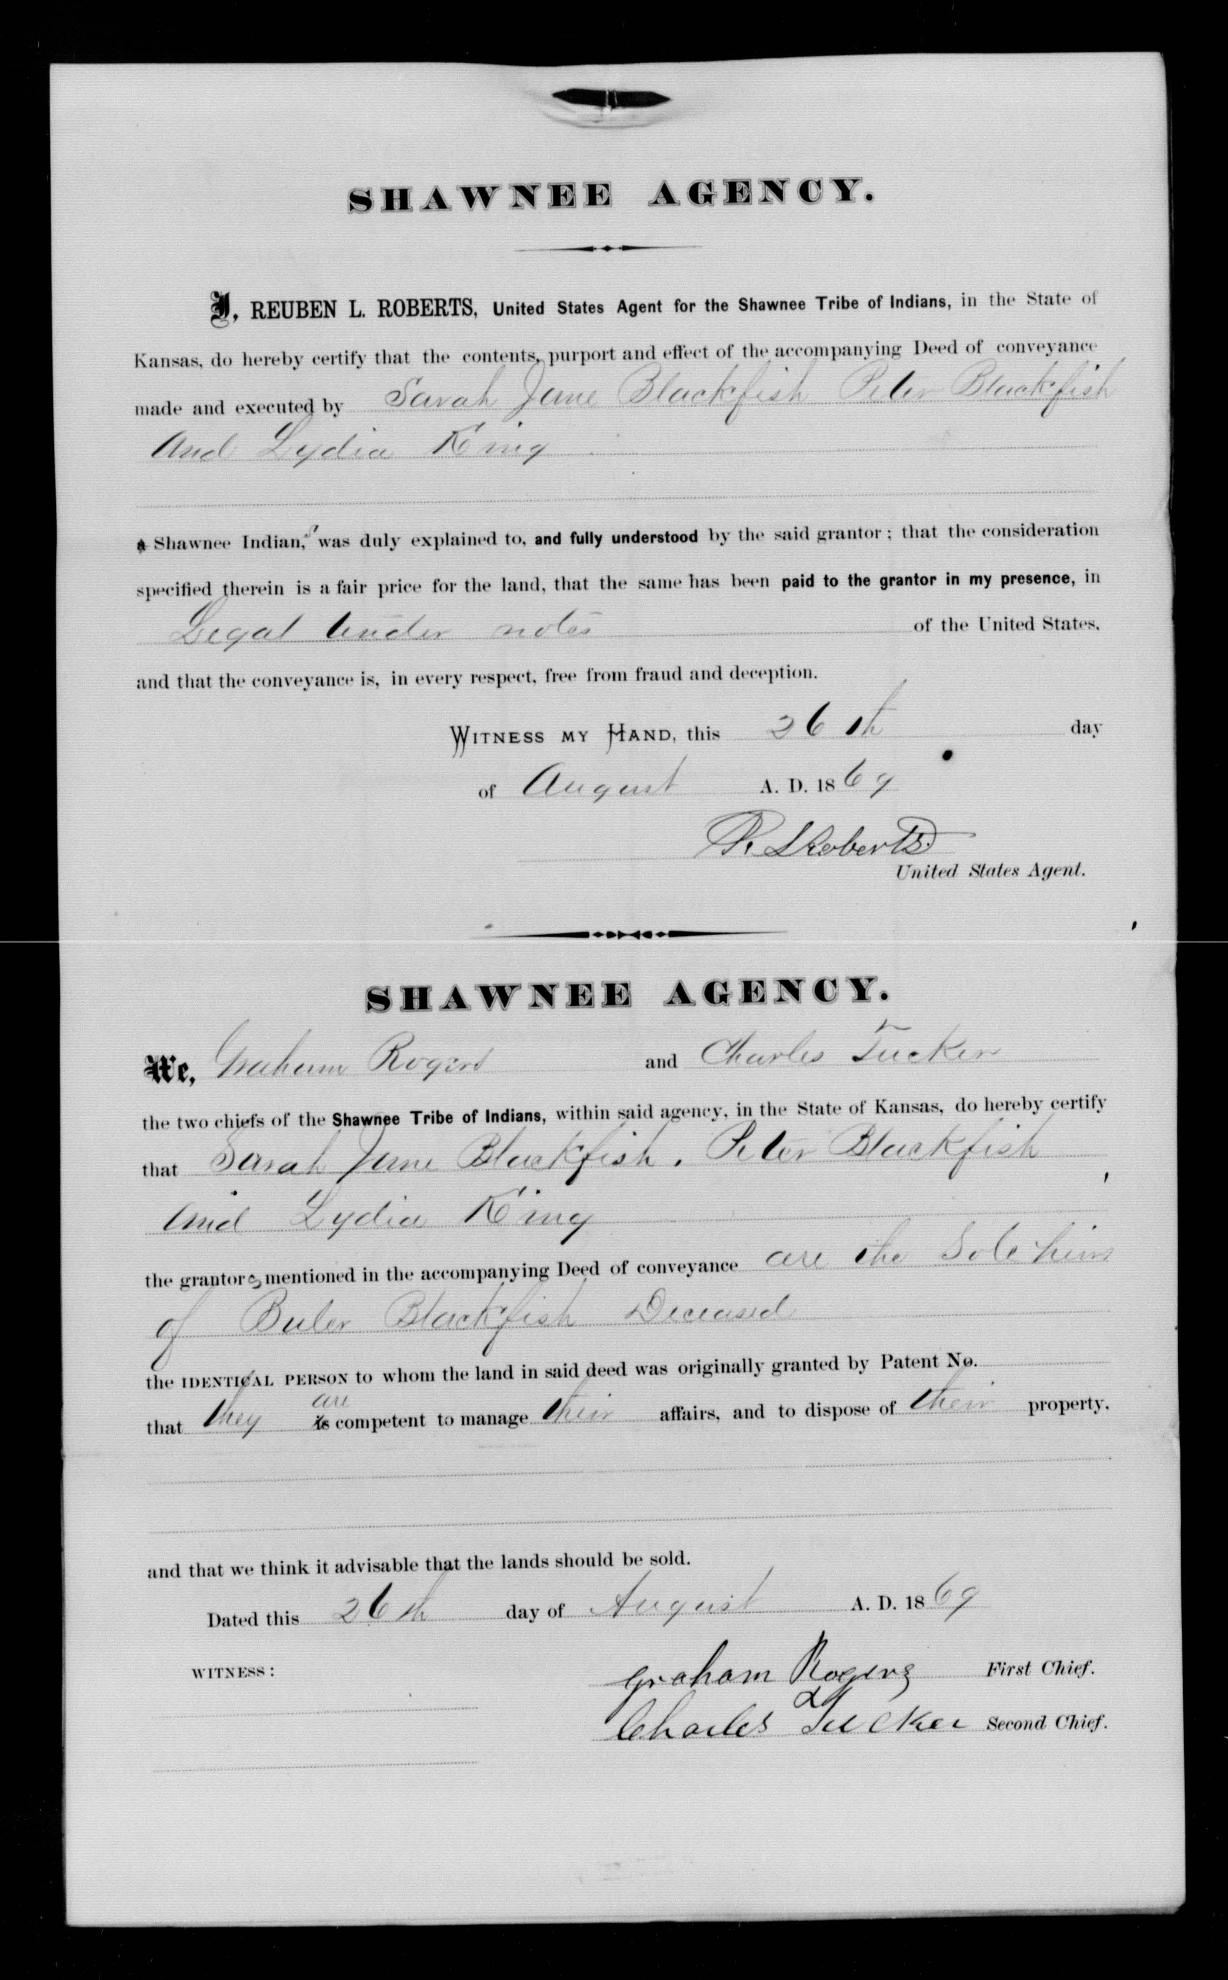 SHAWNEE AGENCY.
I, REUBEN L. ROBERTS, United States Agent for the Shawnee Tribe of Indians, in the State of
Kansas, do hereby certify that the contents, purport and effect of the accompanying Deed of conveyance
made and executed by Sarah Jane Blackfish Peter Blackfish
And Lydia King
a Shawnee Indian,s was duly explained to, and fully understood by the said grantor; that the consideration
specified therein is a fair price for the land, that the same has been paid to the grantor in my presence, in
Legal tender notes of the United States,
and that the conveyance is, in every respect, free from fraud and deception.
WITNESS MY HAND, this 26th day
of August A. D. 1869
R. L Roberts
United States Agent.
SHAWNEE AGENCY.
We, Graham Rogers and Charles Tucker
the two chiefs of the Shawnee Tribe of Indians, within said agency, in the State of Kansas, do hereby certify
that Sarah Jane Blackfish, Peter Blackfish
And Lydia King
the grantors mentioned in the accompanying Deed of conveyance are the Sole heirs
of Buler Blackfish Deceased
the IDENTICAL PERSON to whom the land in said deed was originally granted by Patent No.
are
that they is competent to manage their affairs, and to dispose of their property.
and that we think it advisable that the lands should be sold.
Dated this 26th day of August A. D. 1869
WITNESS:
Graham Rogers First Chief.
Charles Tucker Second Chief.